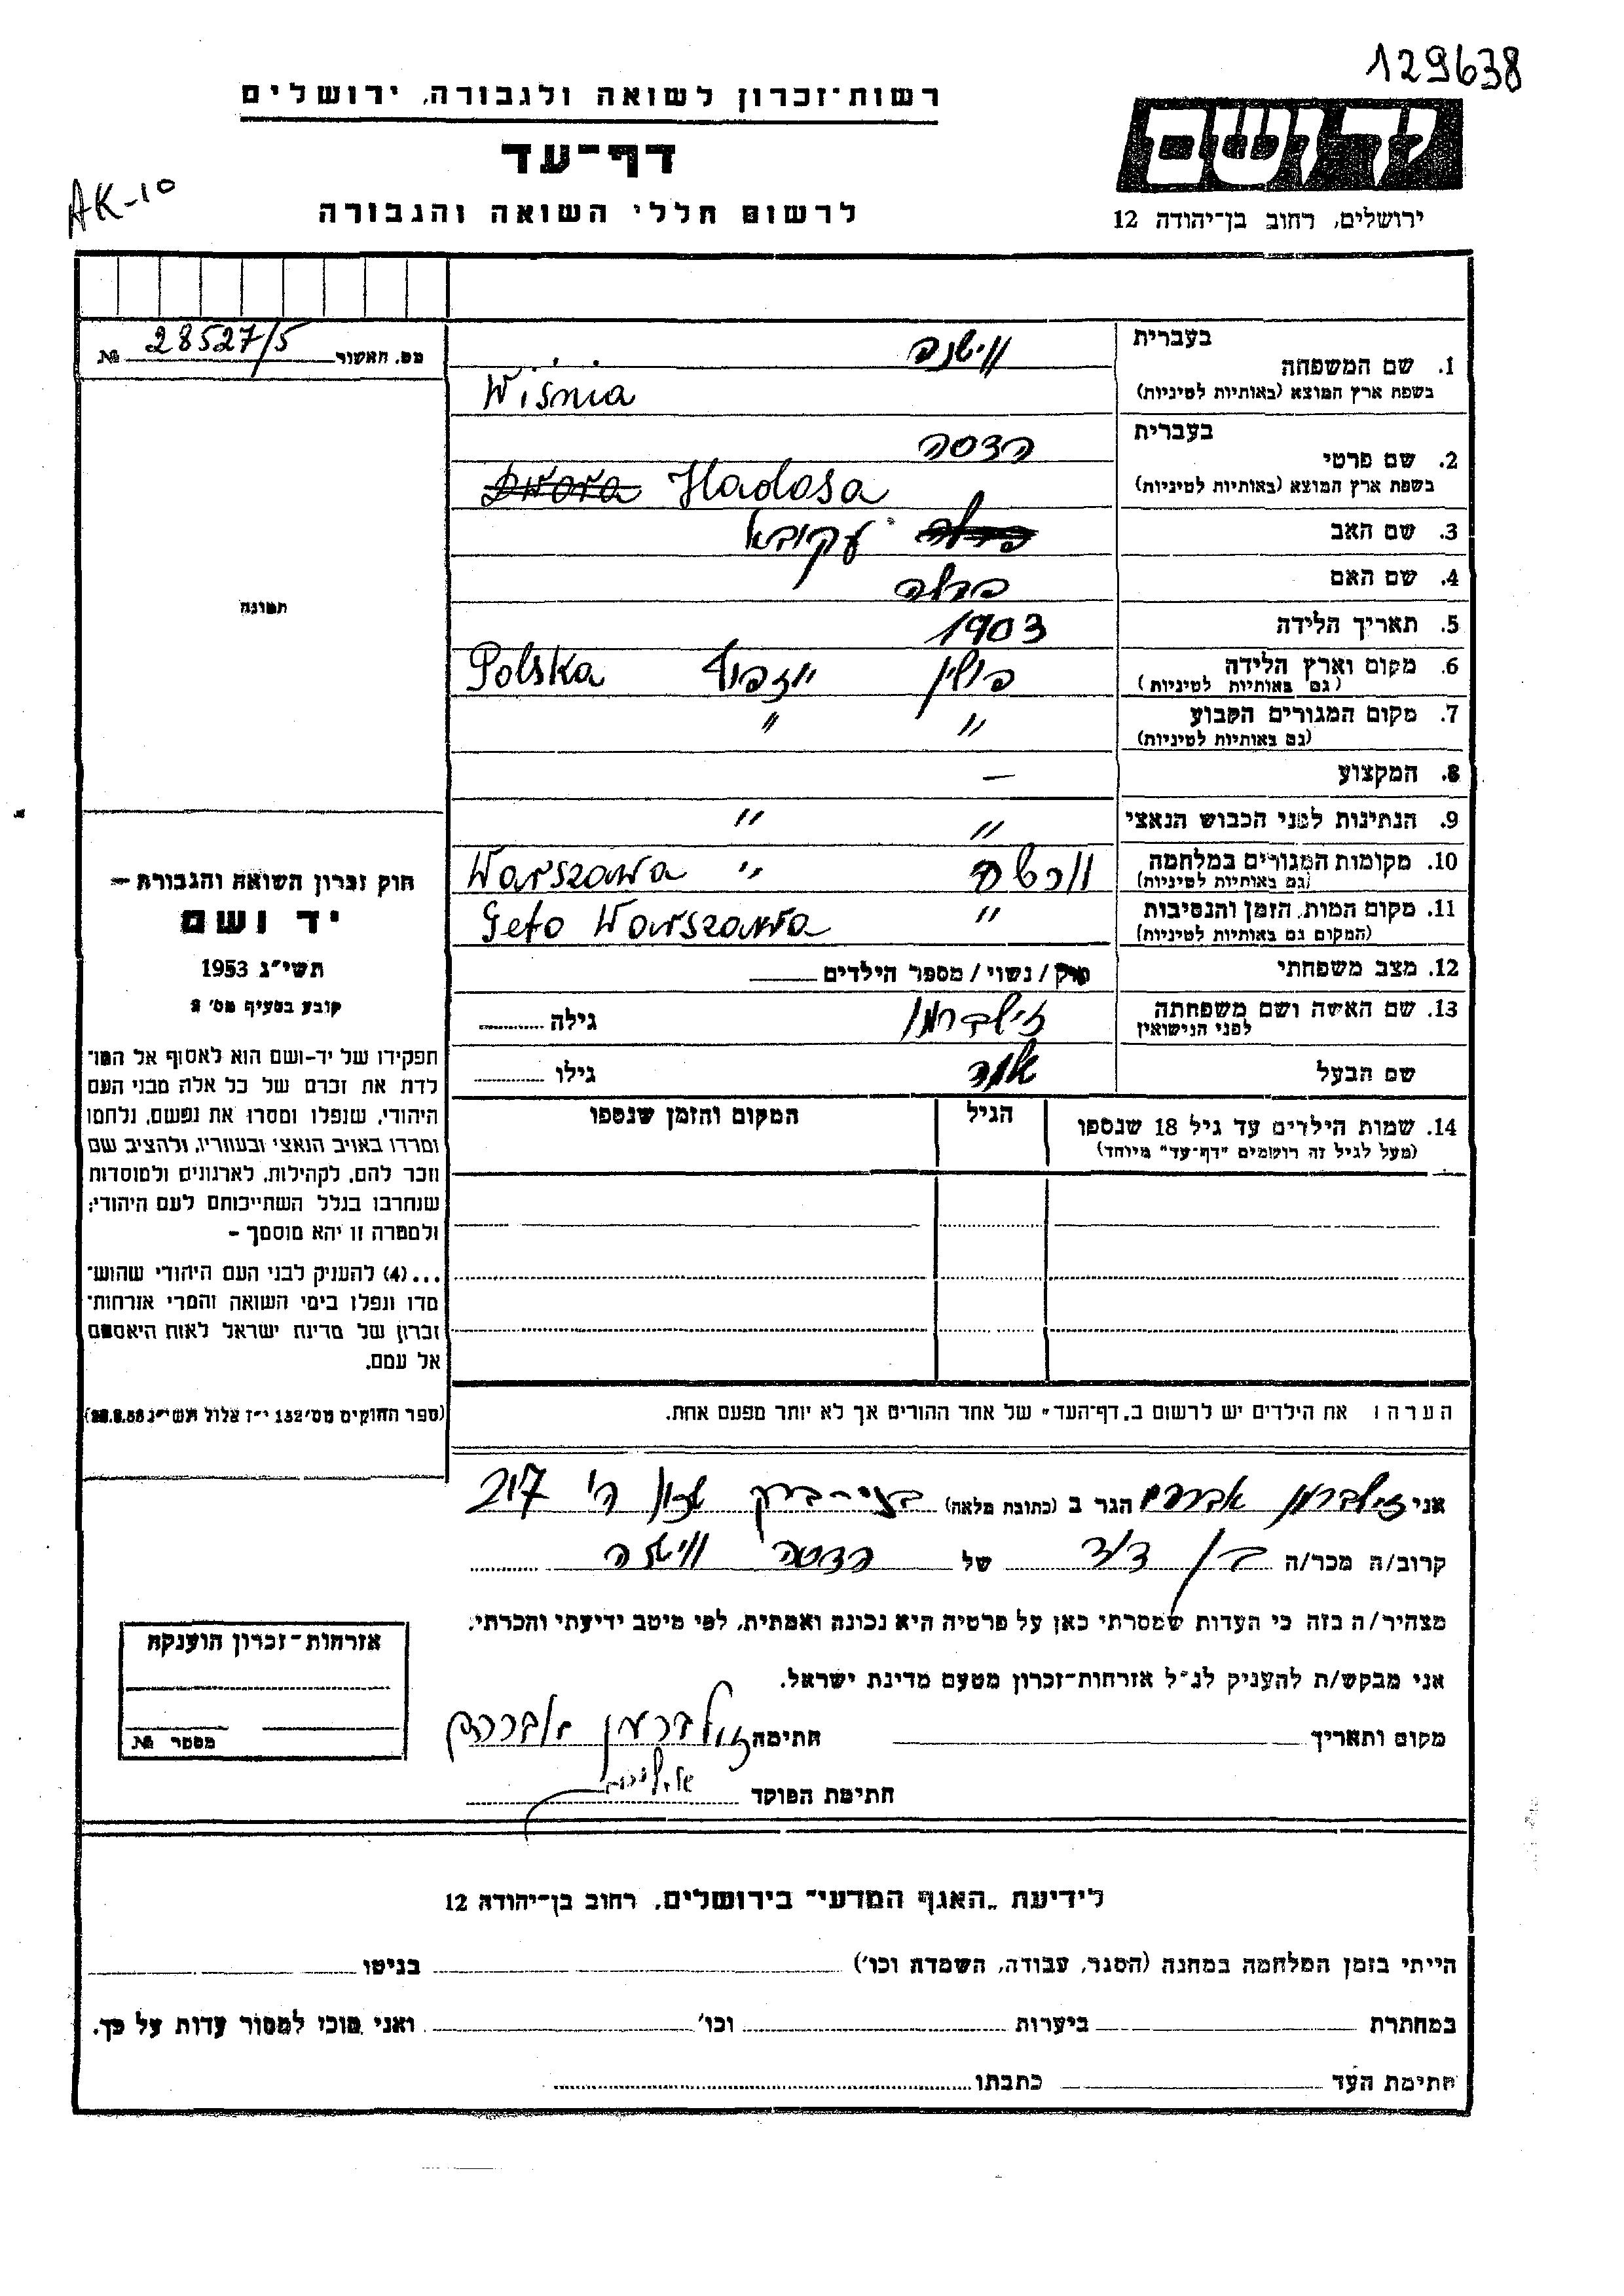 129638
רשות־זכרון לשואה ולגבורה, ירושלים
דף־עד
לרשום חללי השואה והגבורה
AK-10
ידושם
ירושלים, רחוב בן־יהודה 12
מס. האשור 28527/5 №
בעברית
1. שם המשפחה
בשפת ארץ המוצא (באותיות לטיניות)
Wiśnia
בעברית הדסה
2. שם פרטי
בשפת ארץ המוצא (באותיות לטיניות)
Dwora Hadasa
3. שם האב עקיבא
4. שם האם
5. תאריך הלידה 1903
6. מקום וארץ הלידה פולין Polska
(גם באותיות לטיניות)
7. מקום המגורים הקבוע " "
(גם באותיות לטיניות)
8. המקצוע —
9. הנתינות לפני הכבוש הנאצי " "
10. מקומות המגורים במלחמה " Warszawa
(גם באותיות לטיניות)
11. מקום המות, הזמן והנסיבות " Geto Warszawa
(המקום גם באותיות לטיניות)
12. מצב משפחתי רוק/נשוי/מספר הילדים
13. שם האשה ושם משפחתה זילברמן גילה
לפני הנישואין
שם הבעל גילו
14. שמות הילדים עד גיל 18 שנספו הגיל המקום והזמן שנספו
(מעל לגיל זה רושמים "דף־עד" מיוחד)
תמונה
חוק זכרון השואה והגבורה —
יד ושם
תשי"ג 1953
קובע בסעיף מס' 2
תפקידו של יד-ושם הוא לאסוף אל המו־
לדת את זכרם של כל אלה מבני העם
היהודי, שנפלו ומסרו את נפשם, נלחמו
ומרדו באויב הנאצי ובעוזריו, ולהציב שם
וזכר להם, לקהילות, לארגונים ולמוסדות
שנחרבו בגלל השתייכותם לעם היהודי;
ולמטרה זו יהא מוסמך –
...(4) להעניק לבני העם היהודי שהוש־
מדו ונפלו בימי השואה והמרי אזרחות־
זכרון של מדינת ישראל לאות היאספם
אל עמם.
(ספר החוקים מס' 132 י"ז אלול תשי"ג 28.8.53)
הערה: את הילדים יש לרשום ב„דף־העד" של אחד ההורים אך לא יותר מפעם אחת.
אני זילברמן אברהם הגר ב (כתובת מלאה) בני-ברק
קרוב/ה מכר/ה בן דוד של הדסה
מצהיר/ה בזה כי העדות שמסרתי כאן על פרטיה היא נכונה ואמתית, לפי מיטב ידיעתי והכרתי.
אני מבקש/ת להעניק לנ"ל אזרחות-זכרון מטעם מדינת ישראל.
מקום ותאריך חתימה זילברמן אברהם
חתימת הפוקד
אזרחות-זכרון הוענקה
מספר №
לידיעת „האגף המדעי" בירושלים, רחוב בן-יהודה 12
הייתי בזמן המלחמה במחנה (הסגר, עבודה, השמדה וכו') בגיטו
במחתרת ביערות וכו' ואני מוכן למסור עדות על כך.
חתימת העד כתבתו